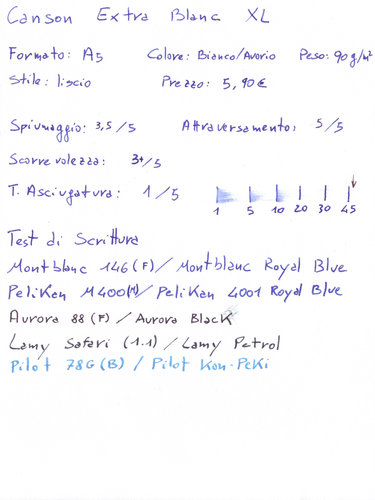 Canson Extra Blanc XL
Formato: A5 Colore: Bianco/Avorio Peso: 90 g/m²
Stile: liscio Prezzo: 5,90€
Spiumaggio: 3,5/5 Attraversamento: 5/5
Scorrevolezza: 3+/5
T. Asciugatura: 1/5 1 5 10 20 30 45
Test di Scrittura
Montblanc 146 (F) / Montblanc Royal Blue
Pelikan M400 (M) / Pelikan 4001 Royal Blue
Aurora 88 (F) / Aurora Black
Lamy Safari (1.1) / Lamy Petrol
Pilot 78G (B) / Pilot Kon-Peki